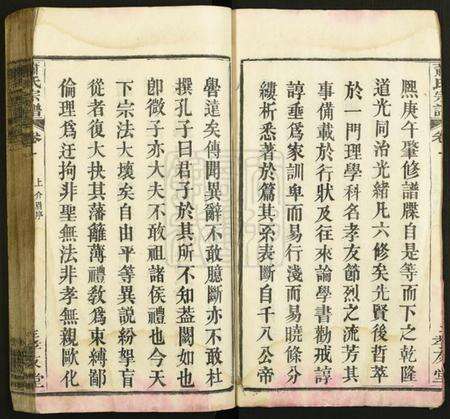 熙庚午肇修譜牒自是等而下之乾隆
道光同治光緒凡六修矣先賢後哲萃
於一門理學科名孝友節烈之流芳其
事備載於行狀及往來論學書勸戒諄
諄垂爲家訓卑而易行淺而易曉條分
縷析悉著於篇其系表斷自千八公帝
譽遠矣傳聞異辭不敢臆斷亦不敢杜
撰孔子曰君子於其所不知蓋闕如也
卽微子亦大夫不敢祖諸侯禮也今天
下宗法大壞矣自由平等異說紛挐盲
從者復大抉其藩籬薄禮敎爲束縛鄙
倫理爲迂拘非聖無法非孝無親歐化
氏宗譜 卷一 孝友堂